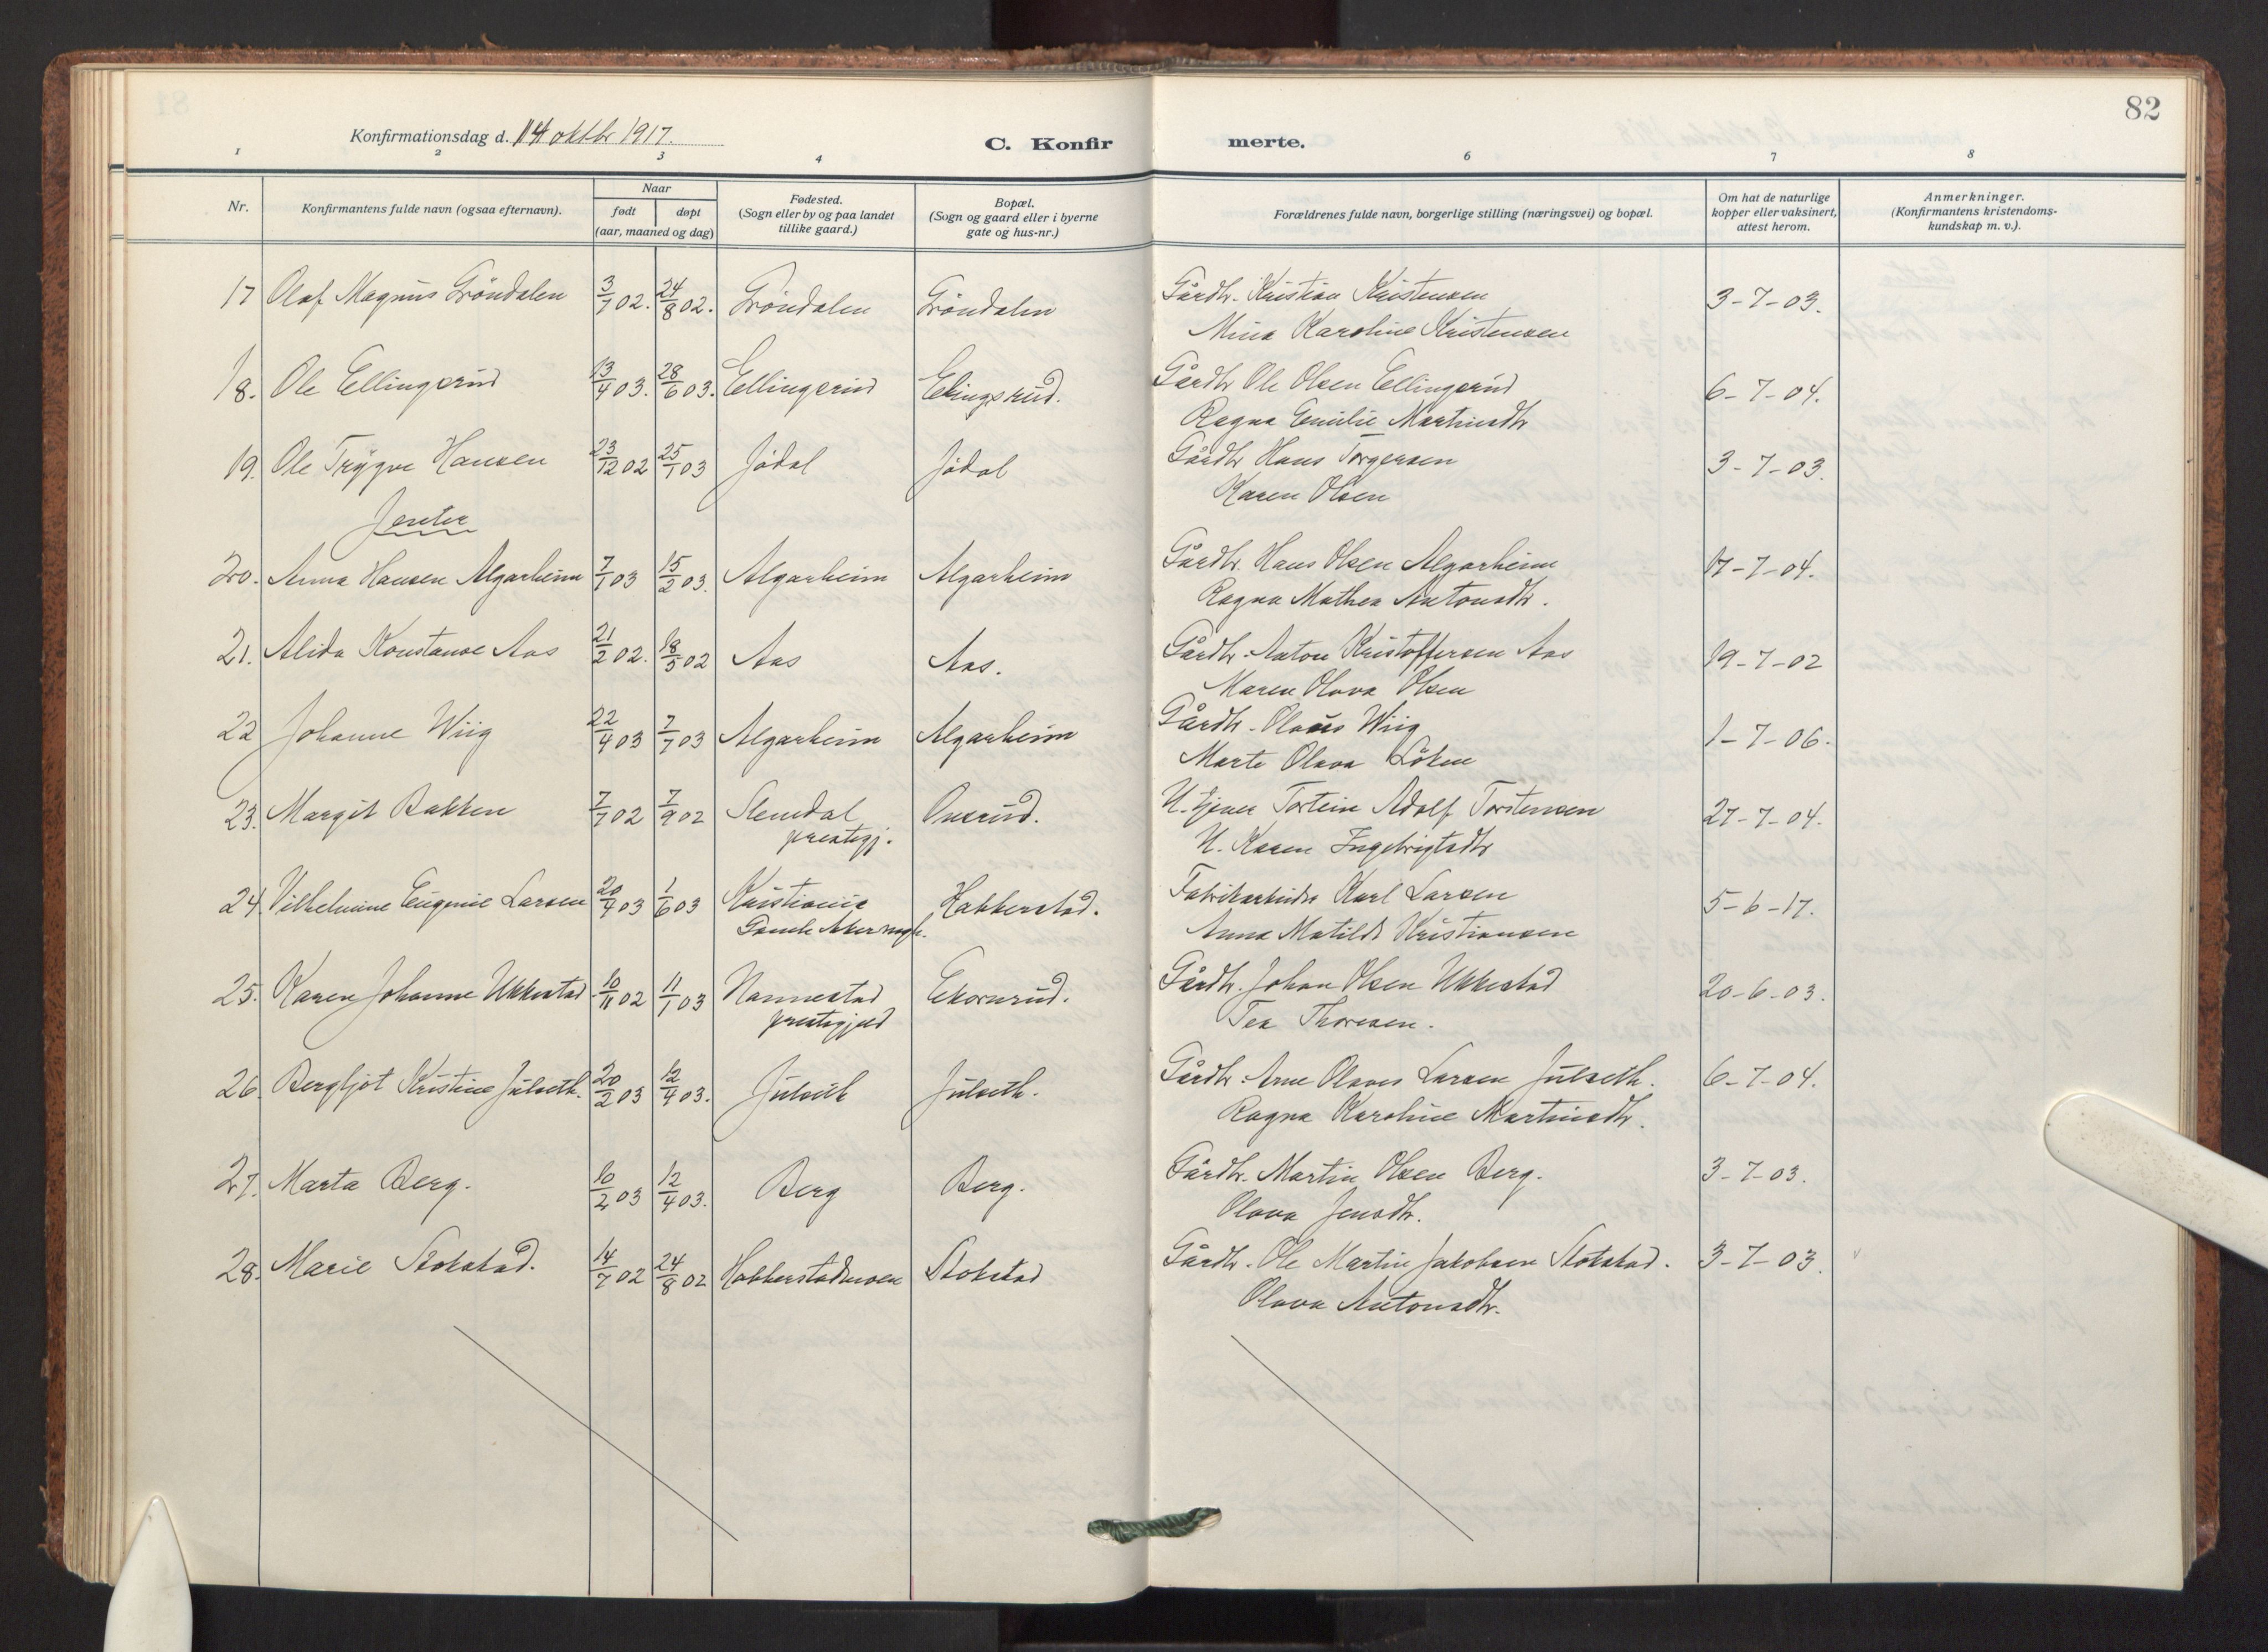 82
Konfirmationsdag d. 14 oktbr 1917.
C. Konfirmerte.
1 2 3 4 6 7 8
Nr.
Konfirmantens fulde navn (ogsaa efternavn).
Naar
født døpt
(aar, maaned og dag)
Fødested.
(Sogn eller by og paa landet
tillike gaard.)
Bopæl.
(Sogn og gaard eller i byerne
gate og hus-nr.)
Forældrenes fulde navn, borgerlige stilling (næringsvei) og bopæl.
Om hat de naturlige
kopper eller vaksinert,
attest herom.
Anmerkninger.
(Konfirmantens kristendoms-
kundskap m. v.).
17 Olaf Magnus Gröndalen 3/7 02. 24/8 02. Gröndalen Gröndalen Gårdbr. Kristian Kristensen 3-7-03.
Mina Karoline Kristensen
18. Ole Ellingsrud 13/4 03. 28/6 03. Ellingsrud Elingsrud. Gårdbr Ole Olsen Ellingsrud 6-7-04.
Ragna Emilie Martinsdtr
19. Ole Trygve Hansen 23/12 02 25/1 03 Jödal Jödal Gårdbr Hans Torgersen 3-7-03.
Karen Olsen
Jenter
20. Anna Hansen Algarheim 7/1 03 15/2 03. Algarheim Algarheim Gårdbr. Hans Olsen Algarheim 17-7-04.
Ragna Mathea Antonsdtr.
21. Alida Konstanse Aas 21/2 02. 18/5 02 Aas Aas. Gårdbr. Anton Kristoffersen Aas 19-7-02
Maren Olava Olsen
22 Johanne Wiig 22/4 03 7/7 03 Algarheim Algarheim Gårdbr. Olaus Wiig 1-7-06.
Marte Olava Löken
23. Margit Bakken 7/7 02 7/9 02 Slemdal Onsrud. U. Gjever Tortein Adolf Torstensen 27-7-04.
prestegj. U. Karen Ingebrigtsdtr
24. Vilhelmine Eugenie Larsen 20/4 03 1/6 03 Kristiania Hakkerstad. Fabrikarbeider Karl Larsen 5-6-17.
Gamle Aker mgh. Anna Matilde Kristiansen
25. Karen Johanne Ukkestad 10/11 02 11/1 03 Nannestad Ekornrud. Gårdbr. Johan Olsen Ukkestad 20-6-03.
prestegjeld Tea Thoresen.
26. Bergljot Kristine Julseth. 20/2 03 12/4 03. Julseth Julseth. Gårdbr. Arne Olaves Larsen Julseth. 6-7-04.
Ragna Karoline Martinsdtr.
27. Marta Berg. 10/2 03 12/4 03. Berg Berg. Gårdbr. Martin Olsen Berg. 3-7-03.
Olava Jensdtr.
28. Marie Stokstad. 14/7 02 24/8 02 Hakkerstadmoen Stokstad Gårdbr. Ole Martin Jakobsen Stokstad. 3-7-03.
Olava Antonsdtr.